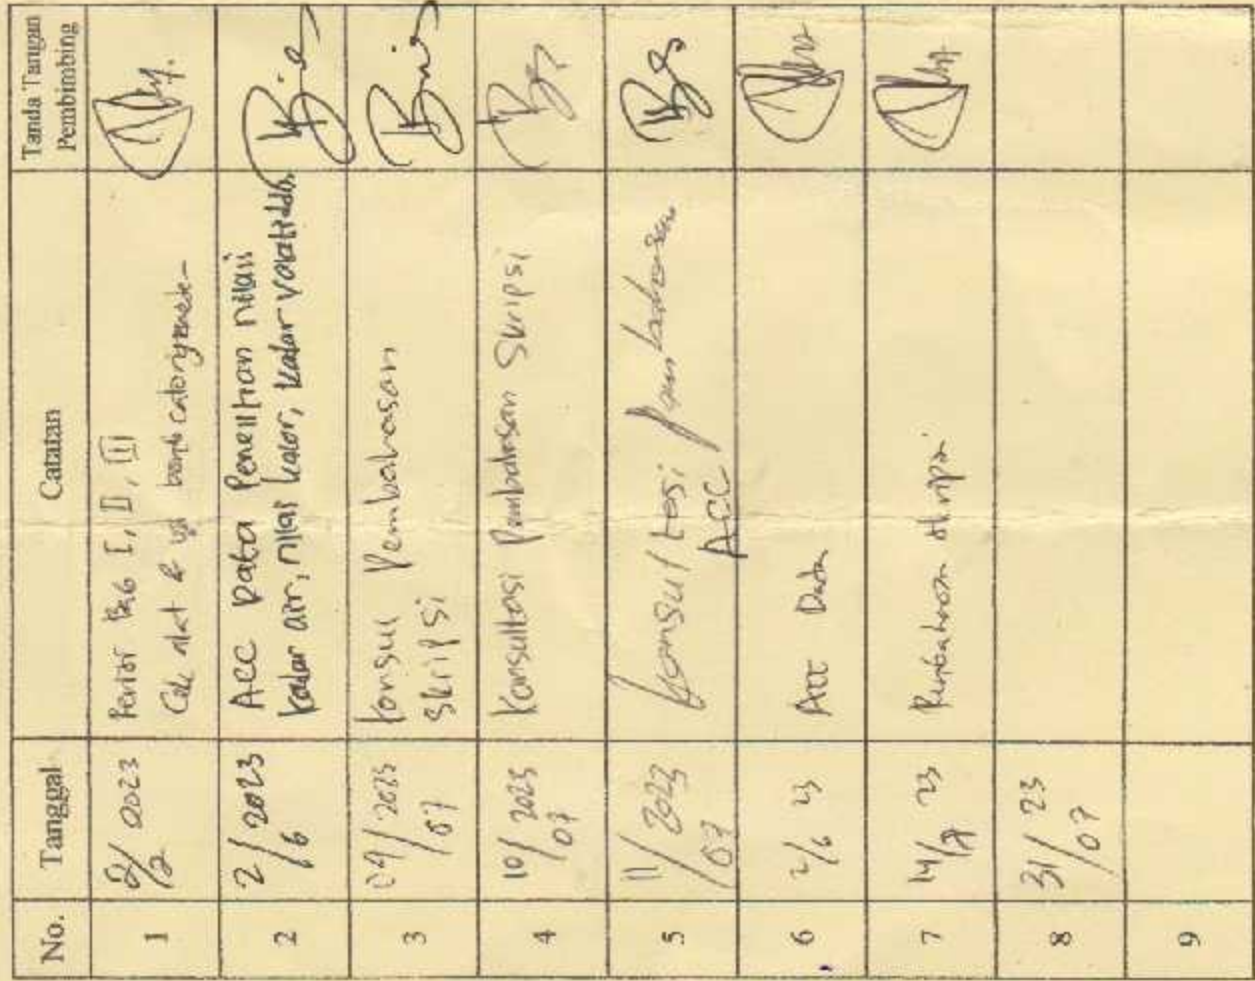 No. Tanggal Catatan Tanda Tangan Pembimbing
1 2/2 2023 BAB I, II, III
Cek alat & uji bomb
2 2/6 2023 ACC Data Penelitian nilai
kadar air, nilai kalor, kadar
3 2023/07 Konsul Pembahasan
Skripsi
4 10/07 2023 Konsultasi Pembahasan Skripsi
5 11/07 2023 Konsultasi Pembahasan
ACC
6 2/6 23 Acc Data
7 14/7 23 Pembahasan skripsi
8 31/07 23
9